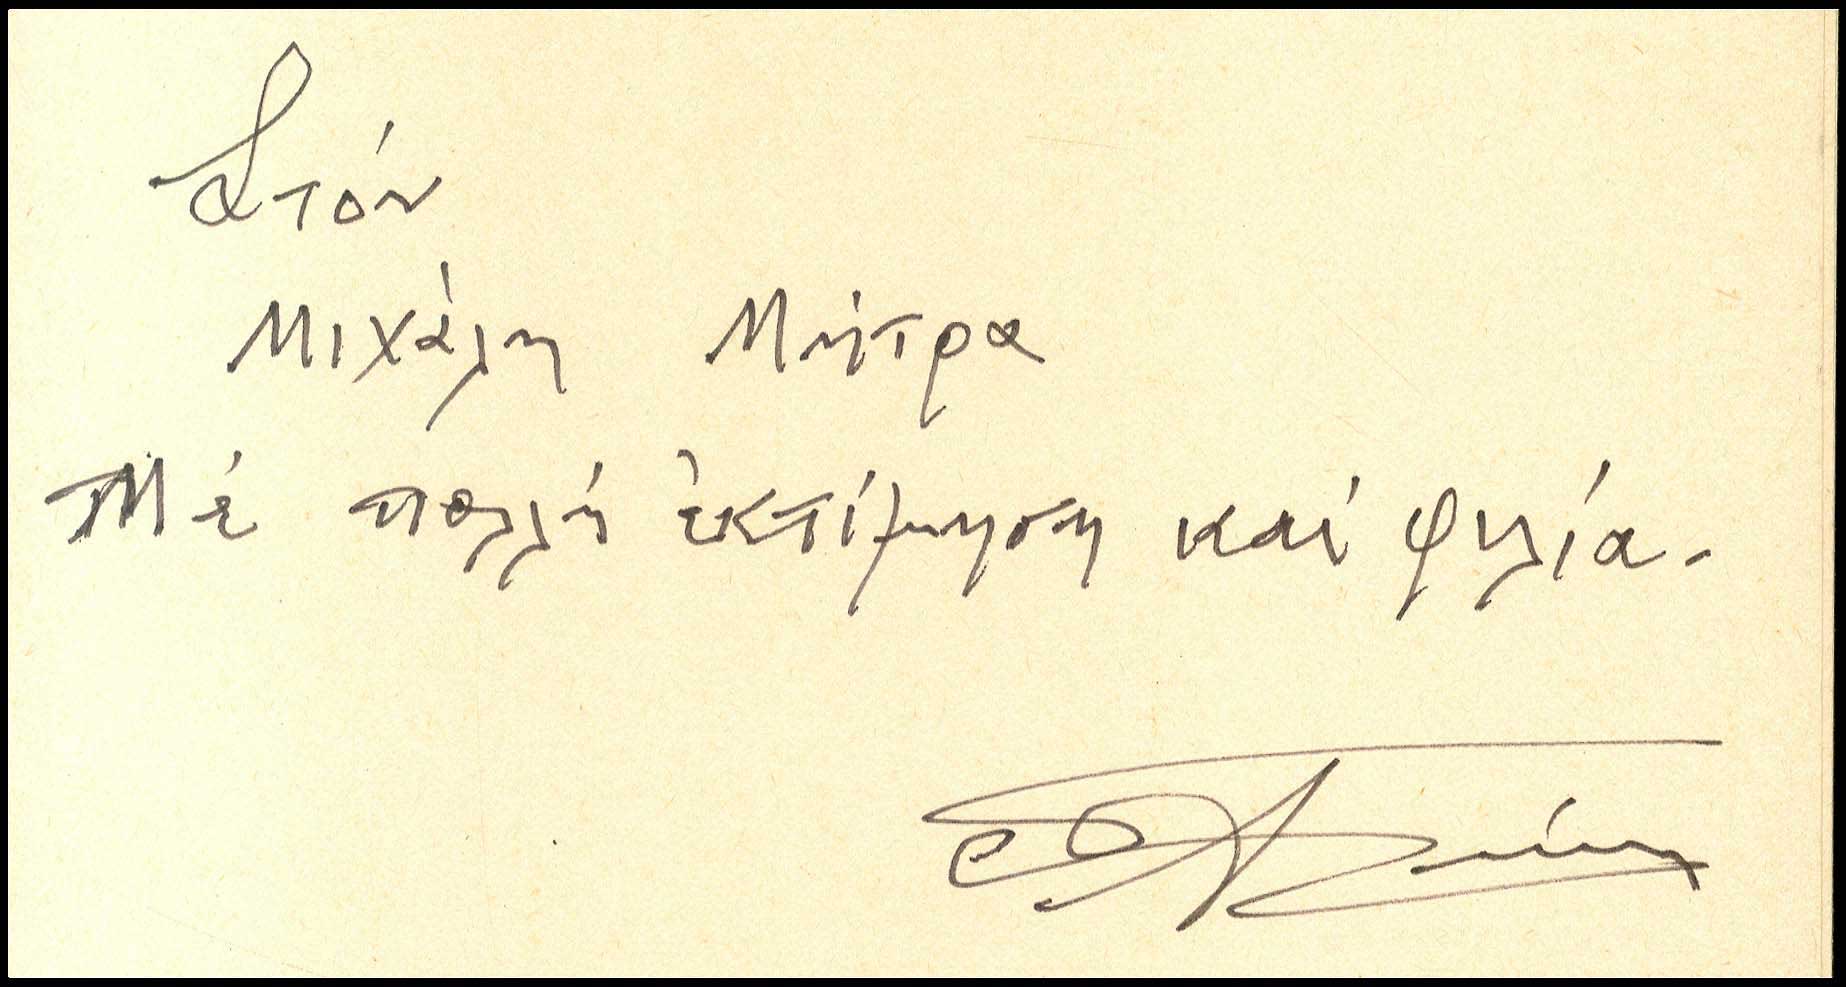 Στόν
Μιχάλη Μήτρα
Μέ πολλή ἐκτίμηση καί φιλία.